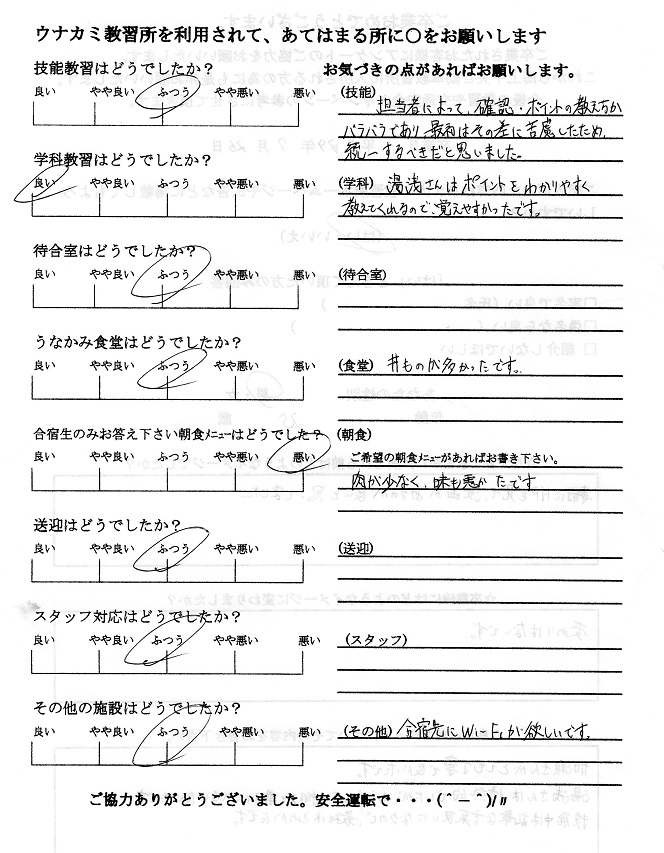 ウナカミ教習所を利用されて、あてはまる所に〇をお願いします
技能教習はどうでしたか?
良い やや良い ふつう やや悪い 悪い
お気づきの点があればお願いします。
(技能)
担当者によって、確認・ポイントの教え方が
バラバラであり、最初はその差に苦慮したため、
統一するべきだと思いました。
学科教習はどうでしたか?
良い やや良い ふつう やや悪い 悪い
(学科) 湯浅さんはポイントをわかりやすく
教えてくれるので、覚えやすかったです。
待合室はどうでしたか?
良い やや良い ふつう やや悪い 悪い
(待合室)
うなかみ食堂はどうでしたか?
良い やや良い ふつう やや悪い 悪い
(食堂) 丼ものが多かったです。
合宿生のみお答え下さい朝食メニューはどうでした?
良い やや良い ふつう やや悪い 悪い
(朝食)
ご希望の朝食メニューがあればお書き下さい。
肉が少なく、味も悪かったです
送迎はどうでしたか?
良い やや良い ふつう やや悪い 悪い
(送迎)
スタッフ対応はどうでしたか?
良い やや良い ふつう やや悪い 悪い
(スタッフ)
その他の施設はどうでしたか?
良い やや良い ふつう やや悪い 悪い
(その他) 合宿先にWi-Fiが欲しいです。
ご協力ありがとうございました。安全運転で・・・(^-^)/〃